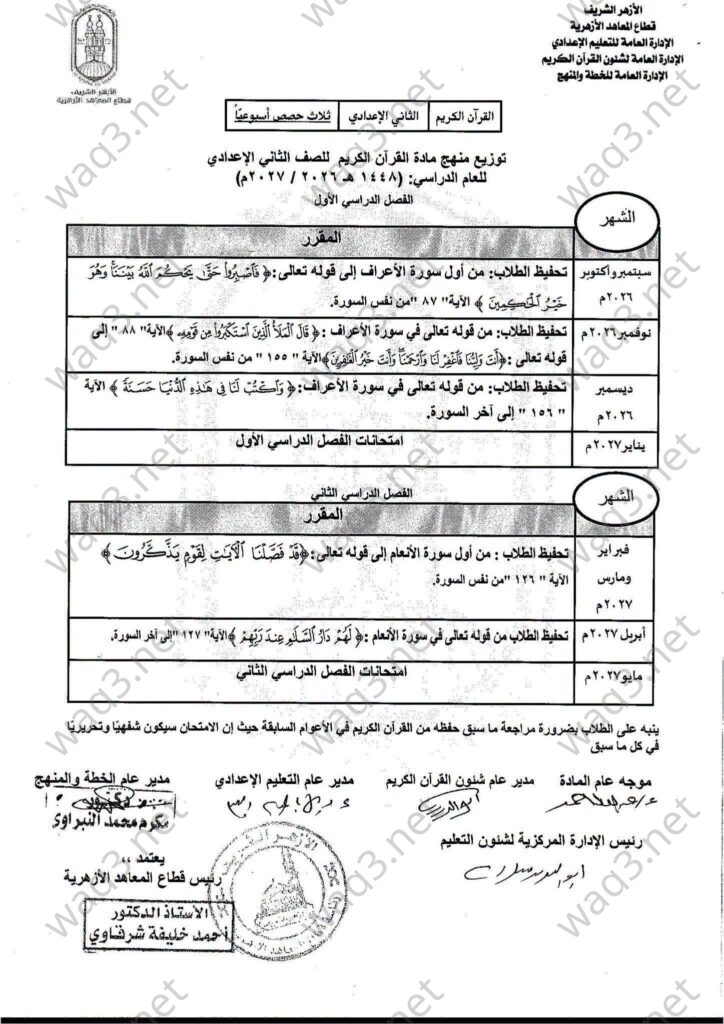 الأزهر الشريف
قطاع المعاهد الأزهرية
الإدارة العامة للتعليم الإعدادي
الإدارة العامة لشئون القرآن الكريم
الإدارة العامة للخطة والمنهج
الأزهر الشريف
قطاع المعاهد الأزهرية
القرآن الكريم | الثاني الإعدادي | ثلاث حصص أسبوعيًا
توزيع منهج مادة القرآن الكريم للصف الثاني الإعدادي
للعام الدراسي: (١٤٤٨ هـ ٢٠٢٦ / ٢٠٢٧م)
الفصل الدراسي الأول
الشهر
المقرر
سبتمبر وأكتوبر
٢٠٢٦م
تحفيظ الطلاب: من أول سورة الأعراف إلى قوله تعالى:﴿ فَاصْبِرُوا حَتَّىٰ يَحْكُمَ اللَّهُ بَيْنَنَا وَهُوَ
خَيْرُ الْحَاكِمِينَ ﴾ الآية" ٨٧ "من نفس السورة.
نوفمبر ٢٠٢٦م
تحفيظ الطلاب: من قوله تعالى في سورة الأعراف :﴿ قَالَ الْمَلَأُ الَّذِينَ اسْتَكْبَرُوا مِن قَوْمِهِ ﴾الآية" ٨٨ " إلى
قوله تعالى :﴿أَنتَ وَلِيُّنَا فَاغْفِرْ لَنَا وَارْحَمْنَا وَأَنتَ خَيْرُ الْغَافِرِينَ﴾الآية " ١٥٥ " من نفس السورة.
ديسمبر
٢٠٢٦م
تحفيظ الطلاب: من قوله تعالى في سورة الأعراف:﴿ وَاكْتُبْ لَنَا فِي هَٰذِهِ الدُّنْيَا حَسَنَةً ﴾ الآية
" ١٥٦ " إلى آخر السورة.
يناير ٢٠٢٧م
امتحانات الفصل الدراسي الأول
الفصل الدراسي الثاني
الشهر
المقرر
فبراير
ومارس
٢٠٢٧م
تحفيظ الطلاب : من أول سورة الأنعام إلى قوله تعالى:﴿قَدْ فَصَّلْنَا الْآيَاتِ لِقَوْمٍ يَذَّكَّرُونَ ﴾
الآية " ١٢٦ "من نفس السورة.
أبريل ٢٠٢٧م
تحفيظ الطلاب من قوله تعالى في سورة الأنعام :﴿ لَهُمْ دَارُ السَّلَامِ عِندَ رَبِّهِمْ ﴾الآية" ١٢٧ "إلى آخر السورة.
مايو ٢٠٢٧م
امتحانات الفصل الدراسي الثاني
ينبه على الطلاب بضرورة مراجعة ما سبق حفظه من القرآن الكريم في الأعوام السابقة حيث إن الامتحان سيكون شفهيًا وتحريريًا
في كل ما سبق
موجه عام المادة
مدير عام شئون القرآن الكريم
مدير عام التعليم الإعدادي
مدير عام الخطة والمنهج
مكرم محمد النبراوي
رئيس الإدارة المركزية لشئون التعليم
يعتمد ,,
رئيس قطاع المعاهد الأزهرية
الأستاذ الدكتور
أحمد خليفة شرقاوي
الأزهر الشريف
waq3.net